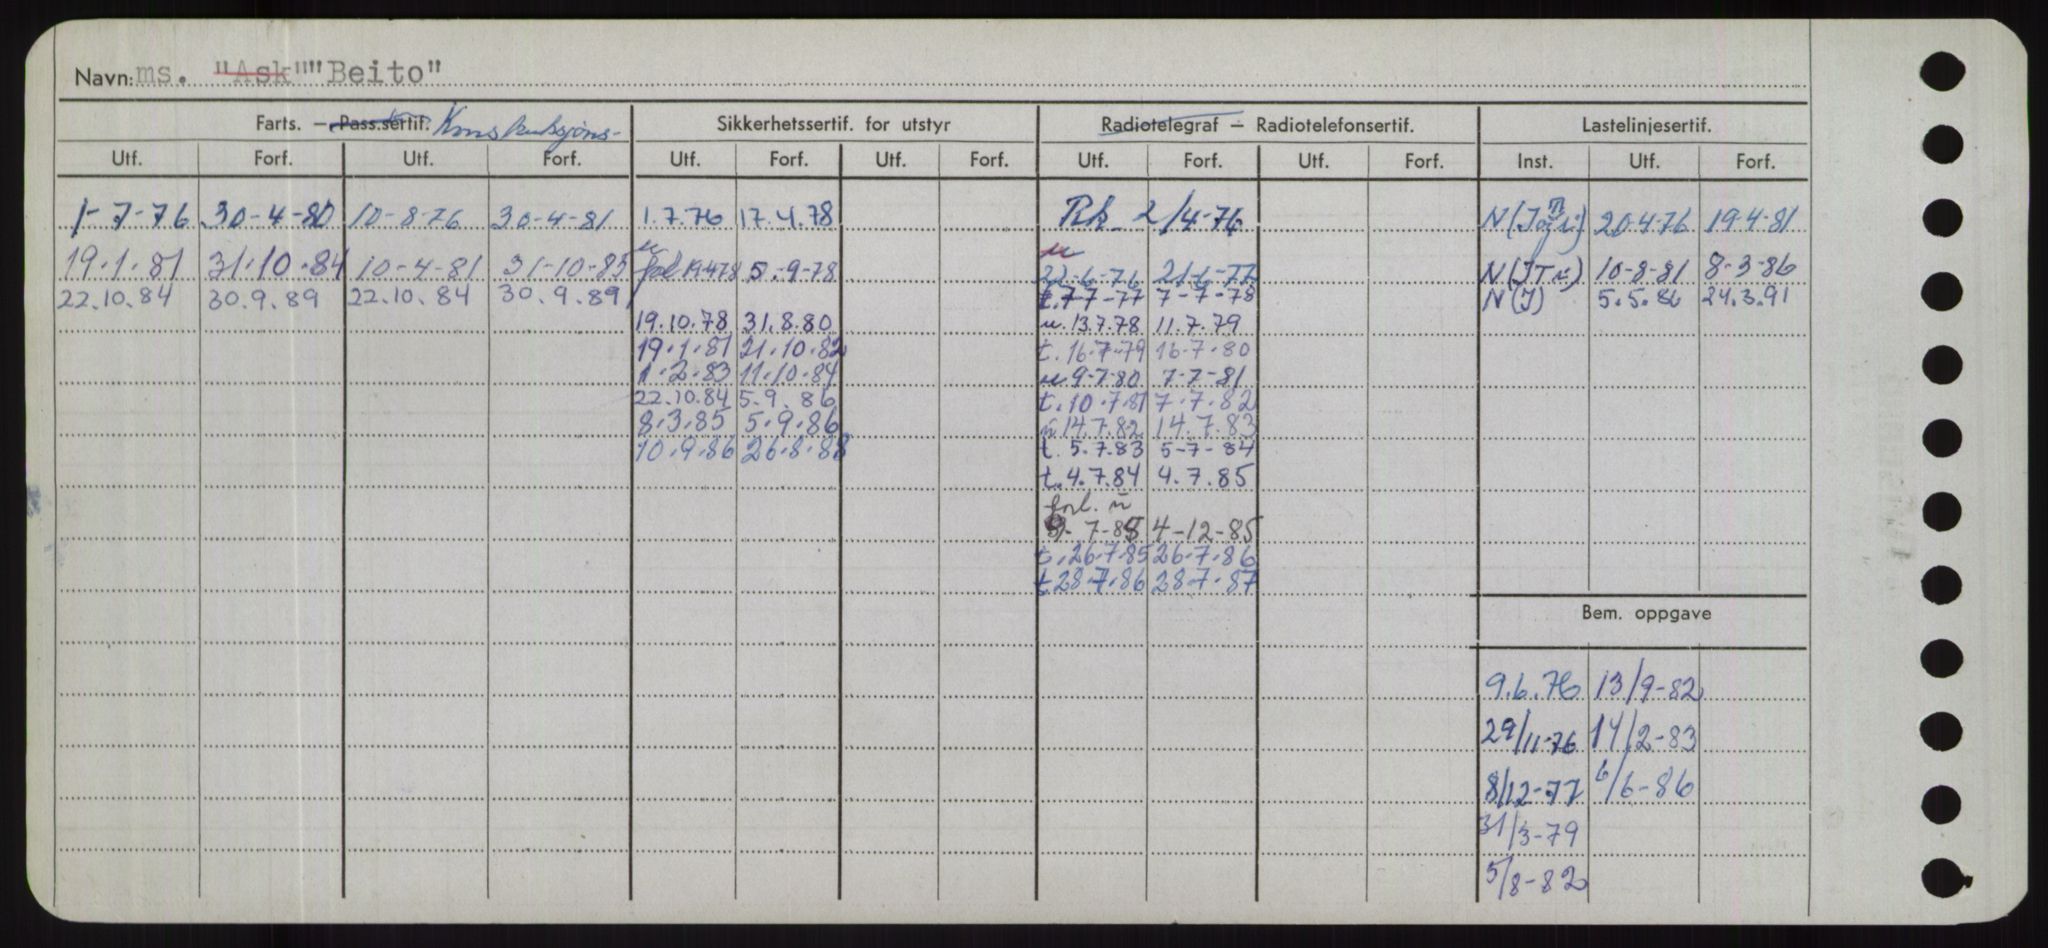 Navn: ms. "Ask" "Beito"
Farts. — Pass.sertif. Konstruksjons- Sikkerhetssertif. for utstyr Radiotelegraf — Radiotelefonsertif. Lastelinjesertif.
Utf. Forf. Utf. Forf. Utf. Forf. Utf. Forf. Utf. Forf. Utf. Forf. Inst. Utf. Forf.
1-7-76 30-4-80 10-8-76 30-4-81 1.7.76 17.4.78 2/4-76 20-4-76 19-4-81
19.1.81 31.10.84 10-4-81 31-10-85 19.4.78 5.-9-78 22-6-76 21-6-77 10-8-81 8-3-86
22.10.84 30.9.89 22.10.84 30.9.89 t.7-7-77 7-7-78 N(I) 5.5.86 24.3.91
19.10.78 31.8.80 u.13.7.78 11.7.79
19.1.81 21.10.82 t.16-7-79 16-7-80
1.2.83 11.10.84 u 9-7-80 7-7-81
22.10.84 5.9.86 t.10.7.81 7.7.82
8.3.85 5.9.86 14.7.82 14.7.83
10.9.86 26.8.88 t.5.7.83 5-7-84
t.4.7.84 4.7.85
forl. u
7-85 4-12-85
t.26.7.85 26.7.86
t.28-7.86 28-7-87
Bem. oppgave
9.6.76 13/9-82
29/11-76 14/2-83
8/12-77 6/6-86
31/3-79
5/8-82